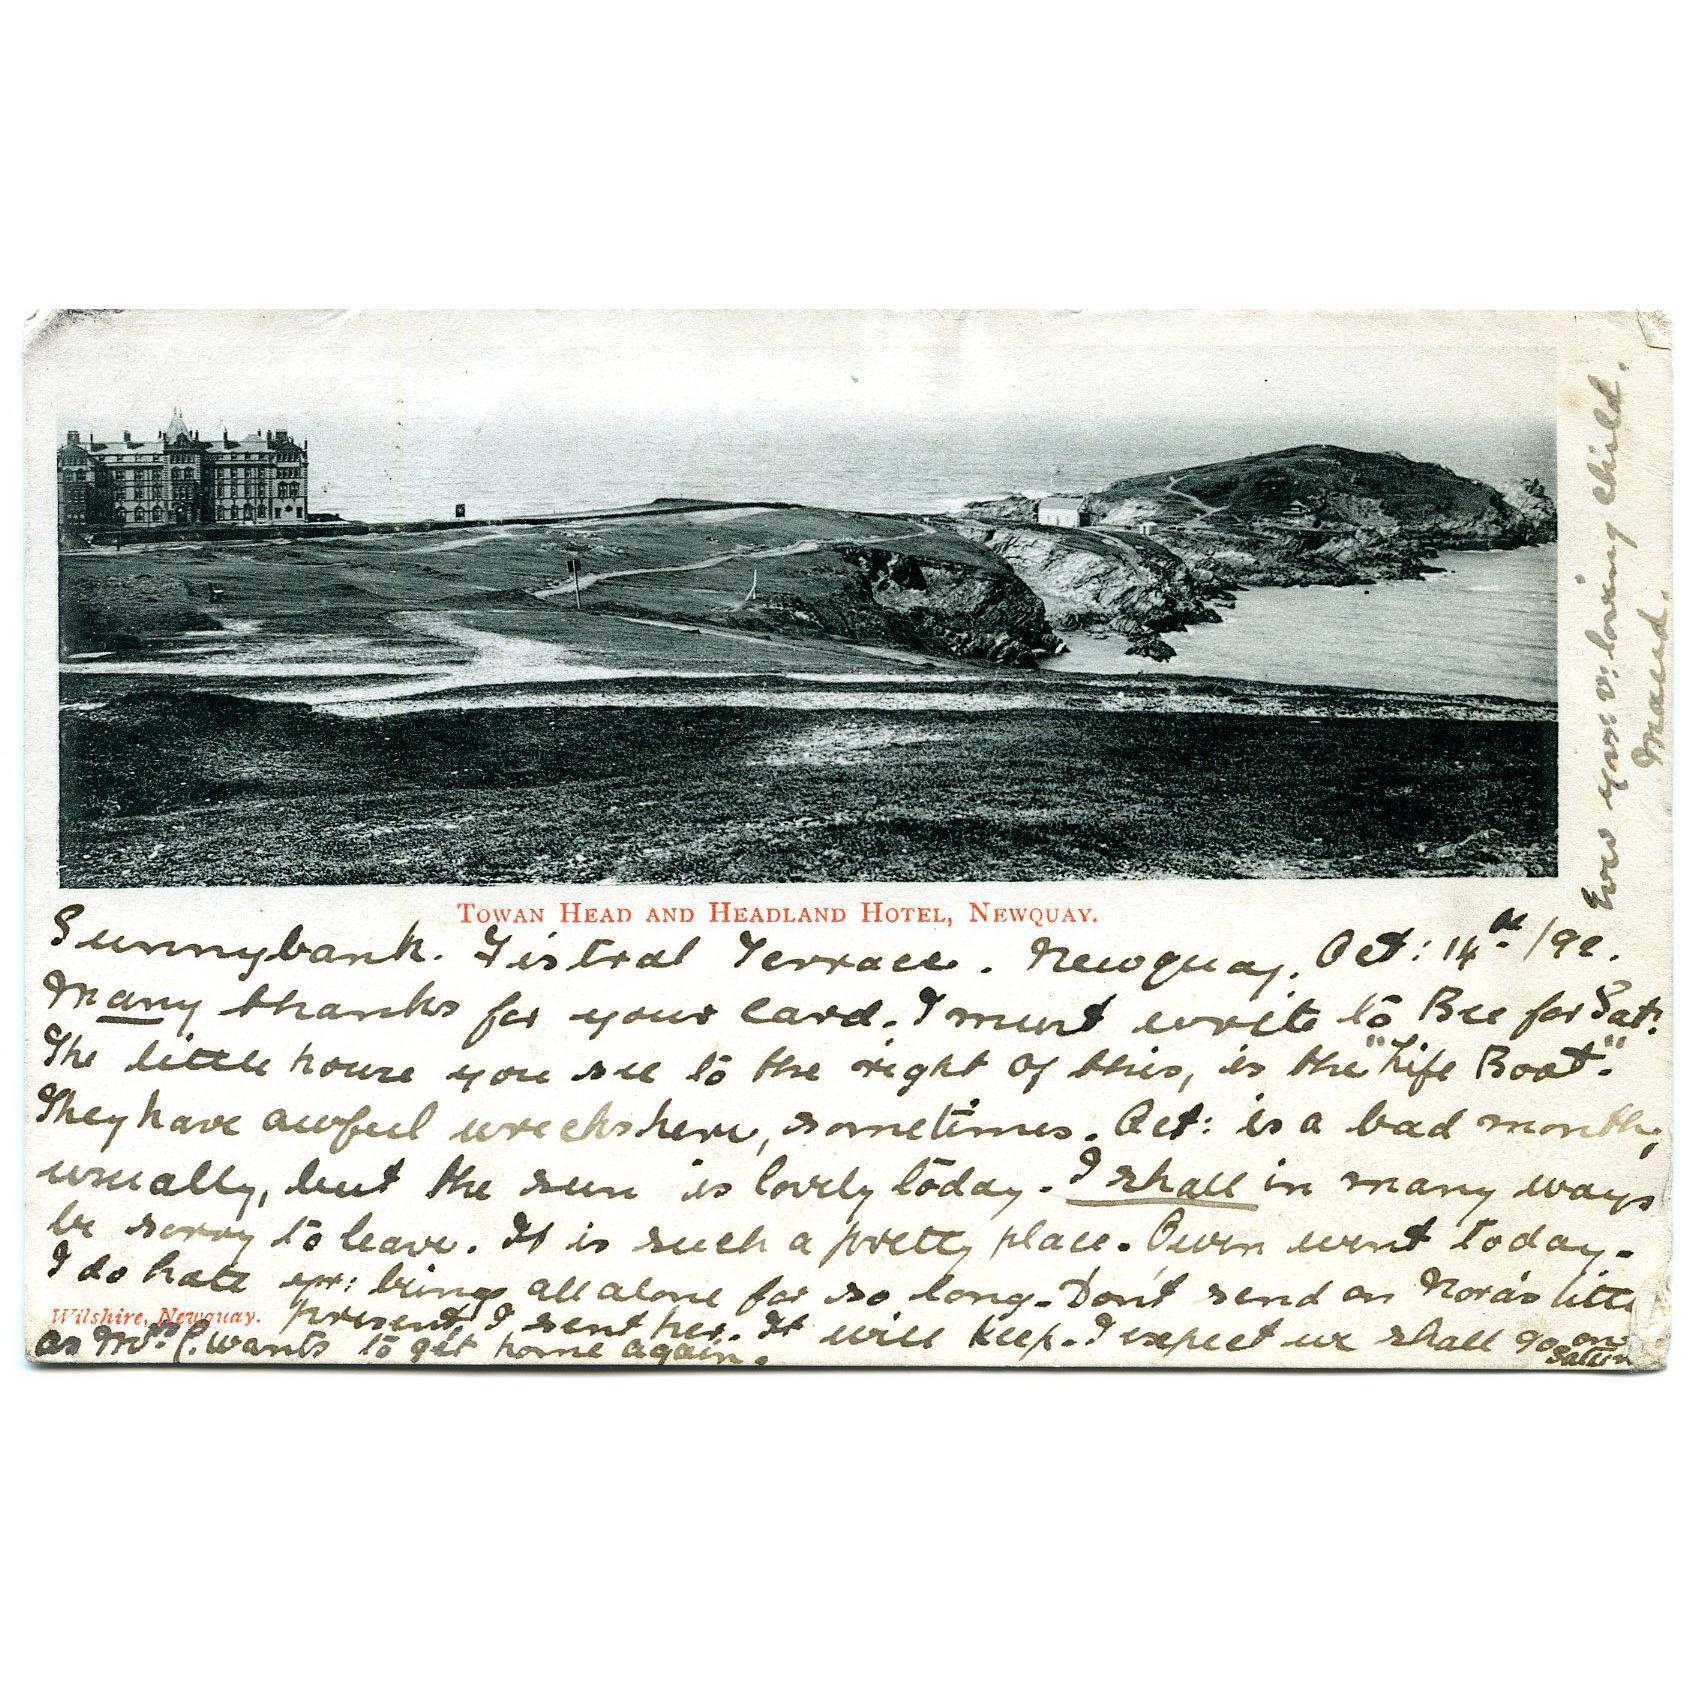 TOWAN HEAD AND HEADLAND HOTEL, NEWQUAY.
Sunnybank. Fistral Terrace. Newquay. Oct: 14th /92.
Many thanks for your card. I must write to Bee for Sat:
The little house you see to the right of this, is the "Life Boat".
They have awful wrecks here, sometimes. Oct: is a bad month,
usually, but the sun is lovely today. I shall in many ways
be sorry to leave. It is such a pretty place. Owen went today.
I do hate yr: being all alone for so long. Don't send on Nora's little
Wilshire, Newquay.
present I sent her. It will keep. I expect we shall go on
as Mrs C. wants to get home again.
Ever yrs v: loving child.
Maud.